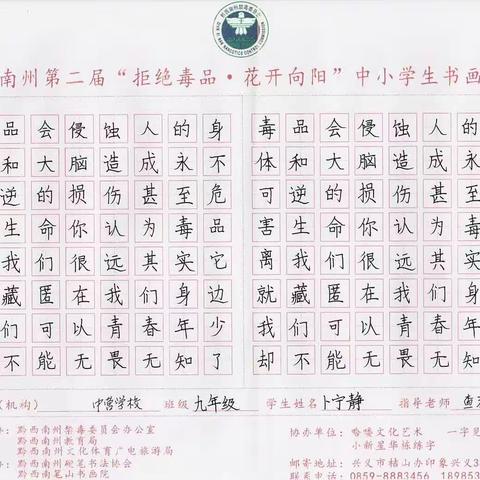 南州第二届“拒绝毒品·花开向阳”中小学生书画
品会侵蚀人的身 毒品会侵蚀人的
和大脑造成永不 体和大脑造成永
逆的损伤甚至危 可逆的损伤甚至
生命你认为毒品 害生命你认为毒
我们很远其实它 离我们很远其实
藏匿在我们身边 就藏匿在我们身
们可以青春年少 我们可以青春年
不能无畏无知了 却不能无畏无知
(机构) 中营学校 班级 九年级 学生姓名 卜宁静 指导老师 鱼
：黔西南州禁毒委员会办公室
黔西南州教育局
黔西南州文化体育广电旅游局
：黔西南州硬笔书法协会
黔西南州笔山书画院
协办单位：哈喽文化艺术 一字见
小新星华栋练字
邮寄地址：兴义市桔山办印象兴义3
联系电话：0859-8883456 189853